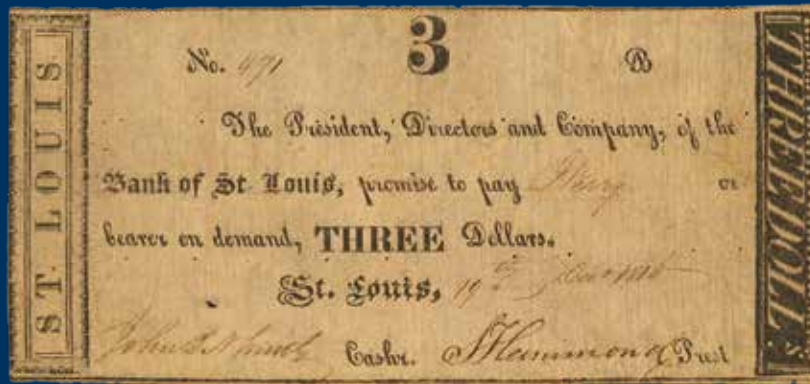 ST. LOUIS
3
No. 471 B
The President, Directors and Company, of the
Bank of St. Louis, promise to pay or
bearer on demand, THREE Dollars.
St. Louis, 19th
John Cashr. S Hammond Prest
THREE DOLLS.